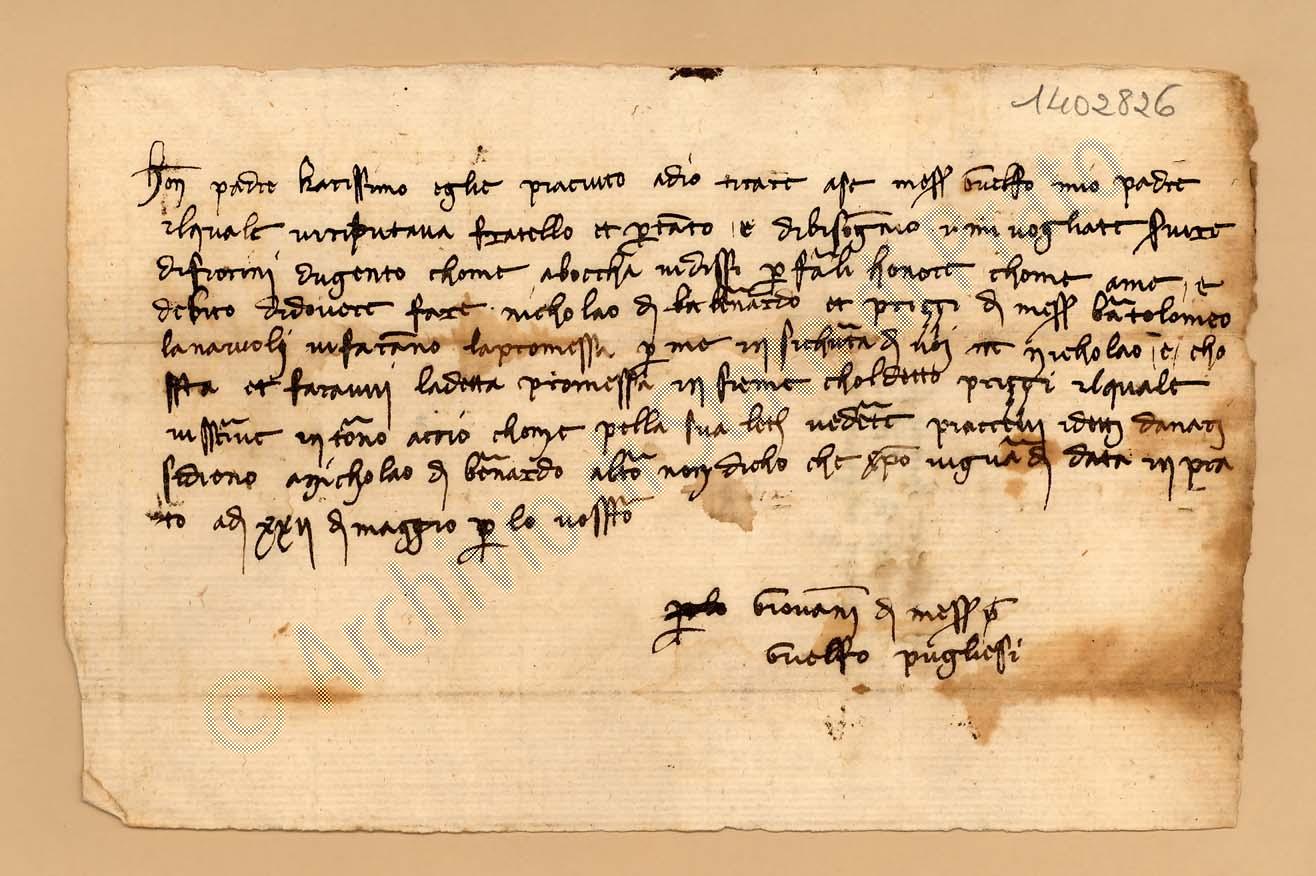 1402826
Hon padre karissimo eglie piaciuto adio tirare ase mess Guelfo mio padre
ilquale viriputava fratello et ptanto e dibisogno vi mi vogliate svire
difiorini dugento chome aboccha vidissi p fali honore chome ame e
debito didovere fare nicholao di benardo et priggi di mess batolomeo
lanaiuoli vifarano lapromessa p me in sichurta di voi nicholao e cho
ssta et faravvi ladetta promessa in sieme choldetto priggi ilquale
visscrive in torno accio chome pella sua letta vedrete piaccevi idetti danari
sidieno anicholao di benardo alto non dicho che xpo viguardi data in pra
to adi xxii di maggio p lo vostro
Giovani di mess
Guelfo pugliesi
© Archivio di Stato di Prato